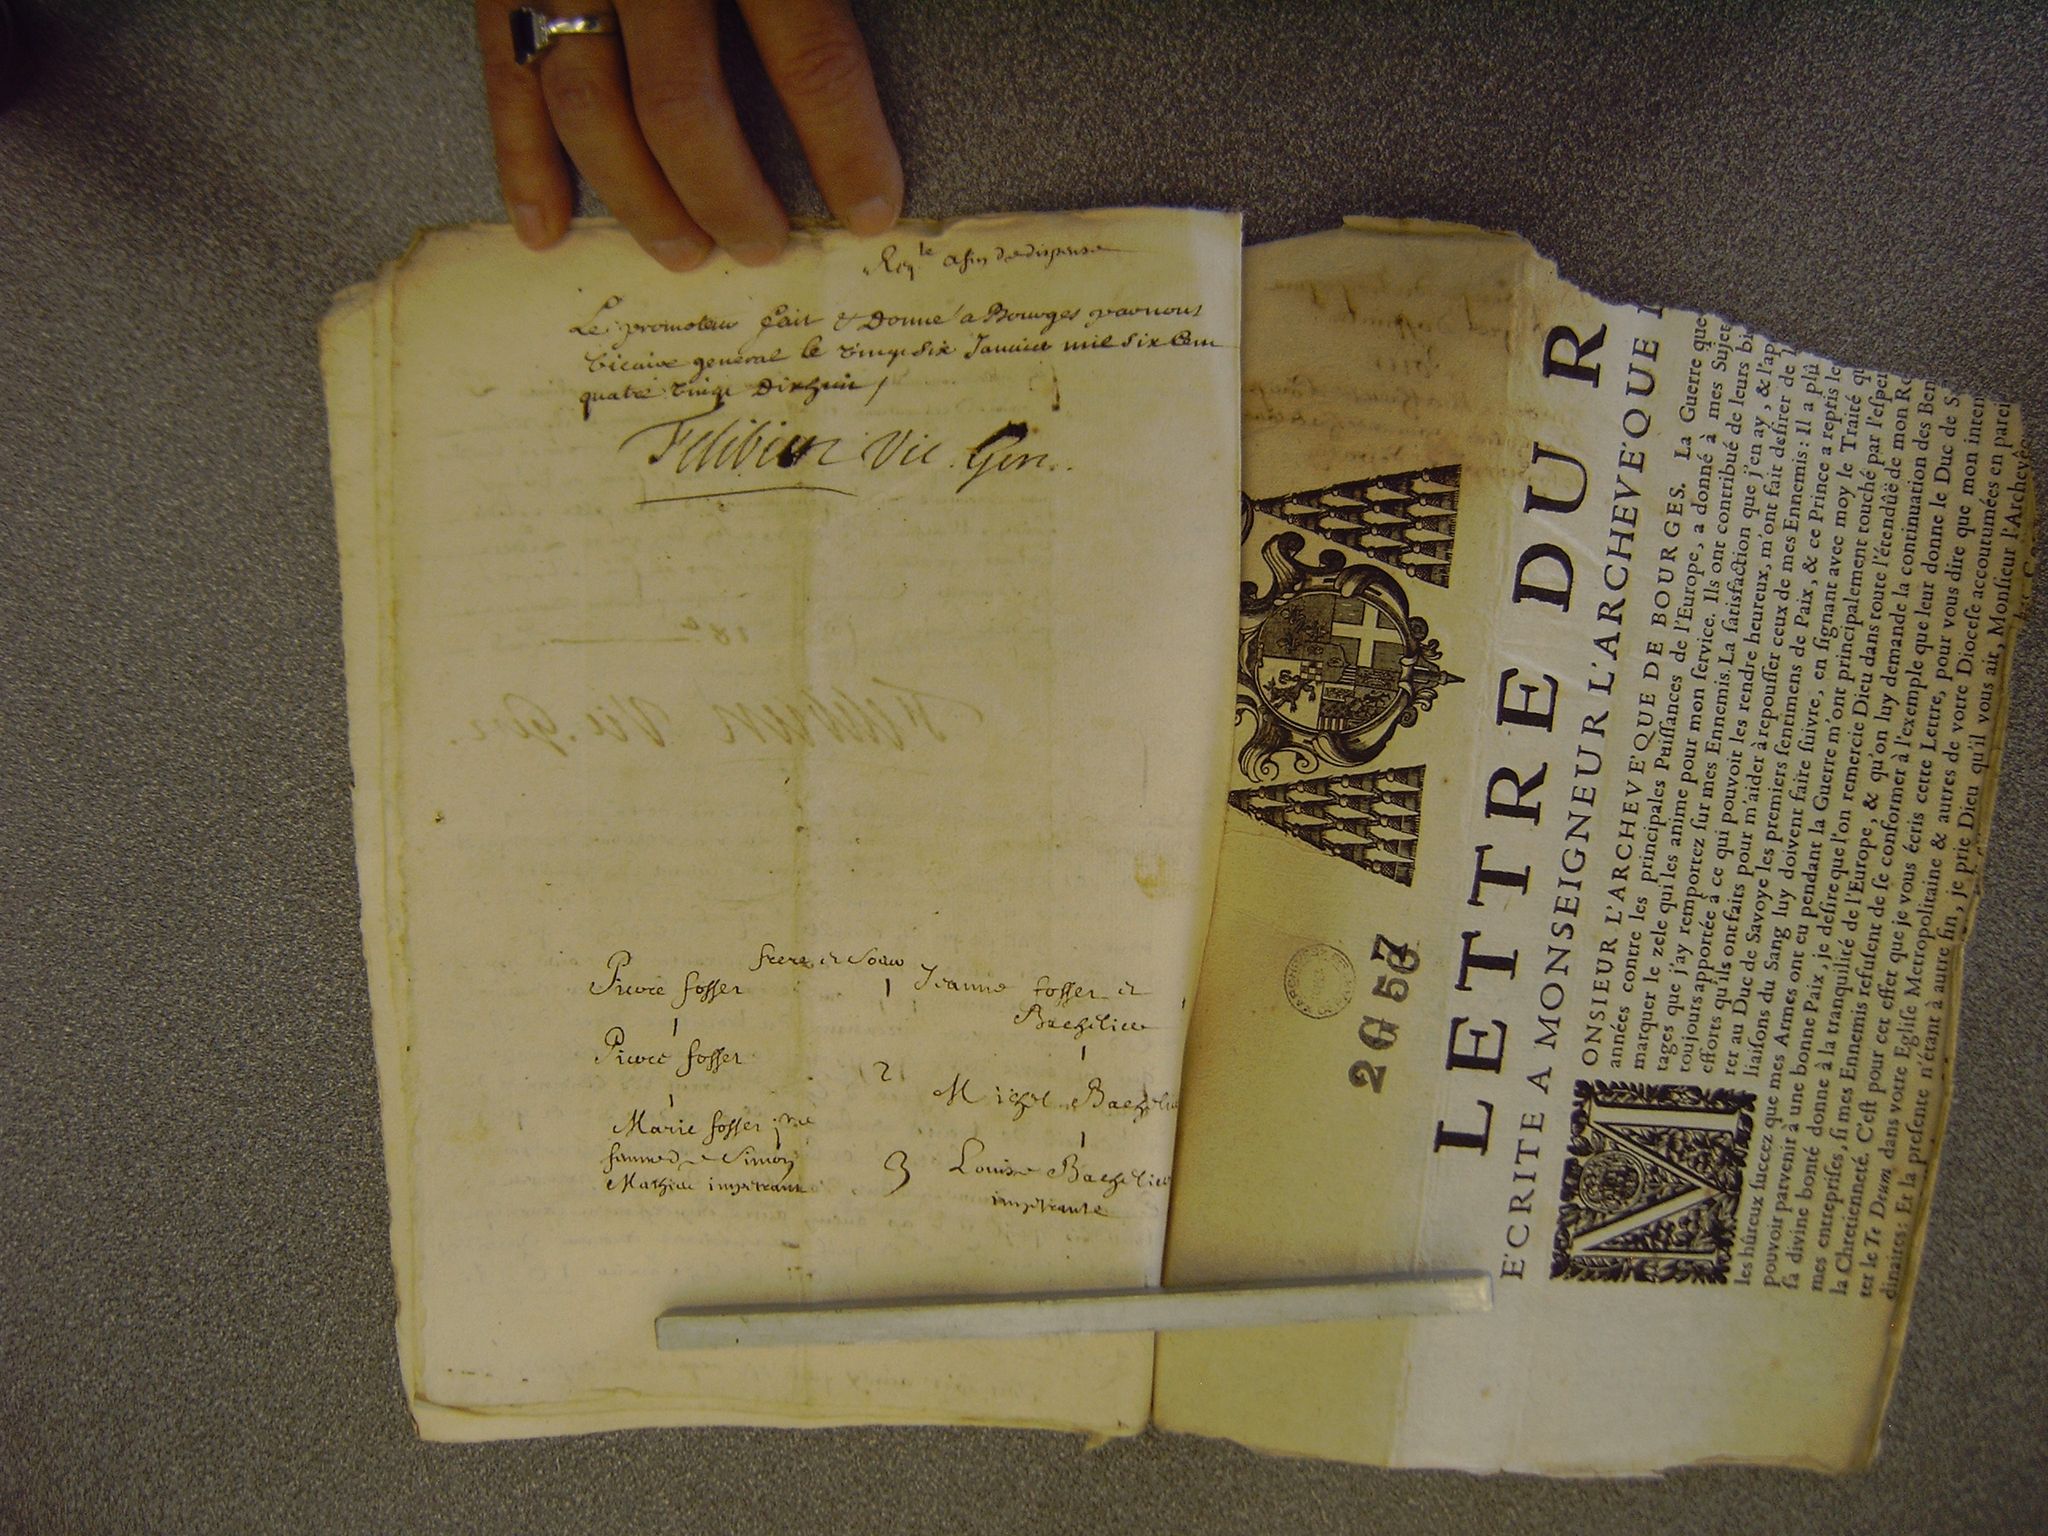 Reqte afin de dispense
Le promoteur fait & Donné a Bourges par nous
vicaire general le vingt six Janvier mil six Cent
quatre vingt Dix huit /
Felibien Vic. Gen.
frere et soeur
Pierre fosser 1 Jeanne fosser et
Bachelier
Pierre fosser 2 Michel Bachelier
Marie fosser
femme de Simon 3 Louise Bachelier
Mathieu impetrant impetrante
2G 57
LETTRE DU R
ÉCRITE A MONSEIGNEUR L'ARCHEVÉQUE
MONSIEUR L'ARCHEVÉQUE DE BOURGES. La Guerre que
années contre les principales Puissances de l'Europe, a donné à mes Sujet
marquer le zele qui les anime pour mon service. Ils ont contribué de leurs bi
tages que j'ay remportez sur mes Ennemis. La satisfaction que j'en ay, & l'ap
toûjours apportée à ce qui pouvoit les rendre heureux, m'ont fait desirer de
efforts qu'ils ont faits pour m'aider à repousser ceux de mes Ennemis: Il a plû
rer au Duc de Savoye les premiers sentimens de Paix, & ce Prince a repris le
liaisons du Sang luy doivent faire suivre, en signant avec moy le Traité qu
les hûreux succez que mes Armes ont eu pendant la Guerre m'ont principalement touché par l'esper
pouvoir parvenir à une bonne Paix, je desire que l'on remercie Dieu dans toute l'étenduë de mon Ro
sa divine bonté donne à la tranquilité de l'Europe, & qu'on luy demande la continuation des Ben
mes entreprises, si mes Ennemis refusent de se conformer à l'exemple que leur donne le Duc de S
la Chrétienneté. C'est pour cet effet que je vous écris cette Lettre, pour vous dire que mon inten
ter le Te Deum dans votre Eglise Metropolitaine & autres de votre Diocese accoutumées en parei
dinaires: Et la presente n'étant à autre fin, je prie Dieu qu'il vous ait, Monsieur l'Archevêque